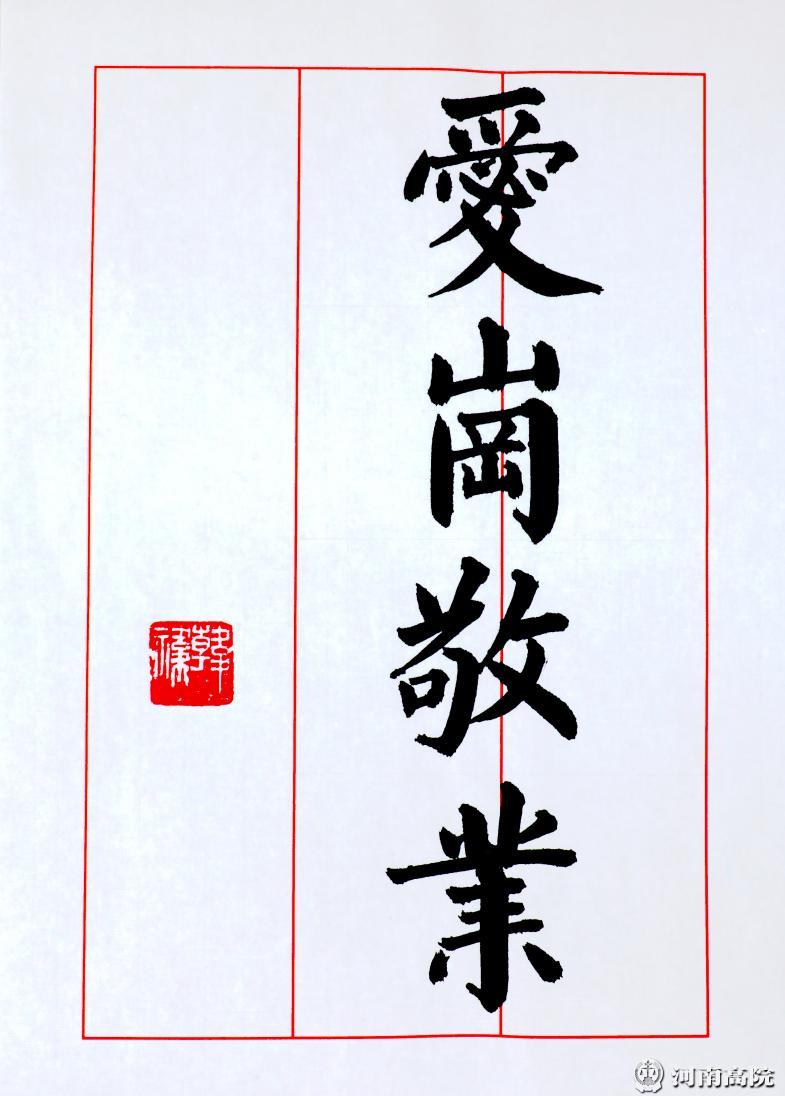 愛崗敬業
河南高院